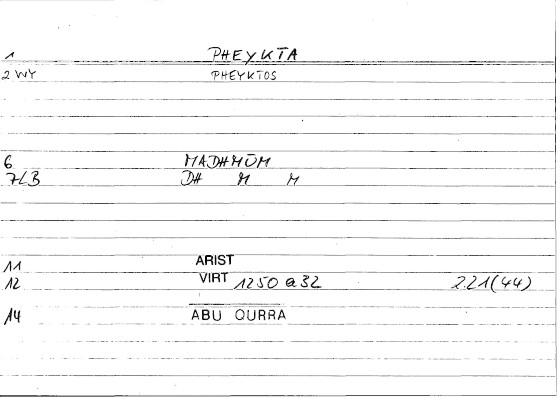 1 PHEYKTA
2 WY PHEYKTOS
6 MADHMŪM
7LB DH M M
11 ARIST
12 VIRT 1250 a32 2.21(44)
14 ABU QURRA